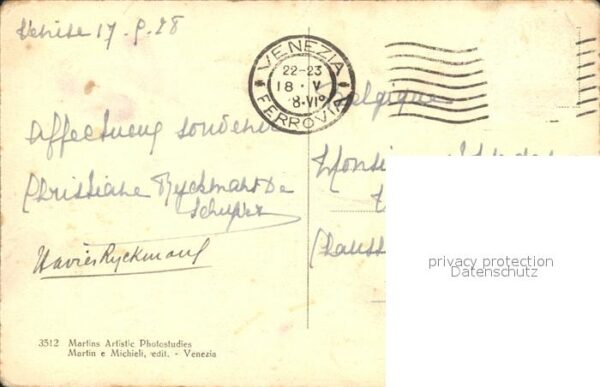 Venise 17.9.28
VENEZIA
22-23
18 · V
8·VI°
FERROVIA
Belgique
Affectueux souvenir
Monsieur
Christiane Ryckmans De
Schuper
Chauss
Xavier Ryckmans
privacy protection
Datenschutz
3512 Martins Artistic Photostudies
Martin e Michieli, edit. - Venezia